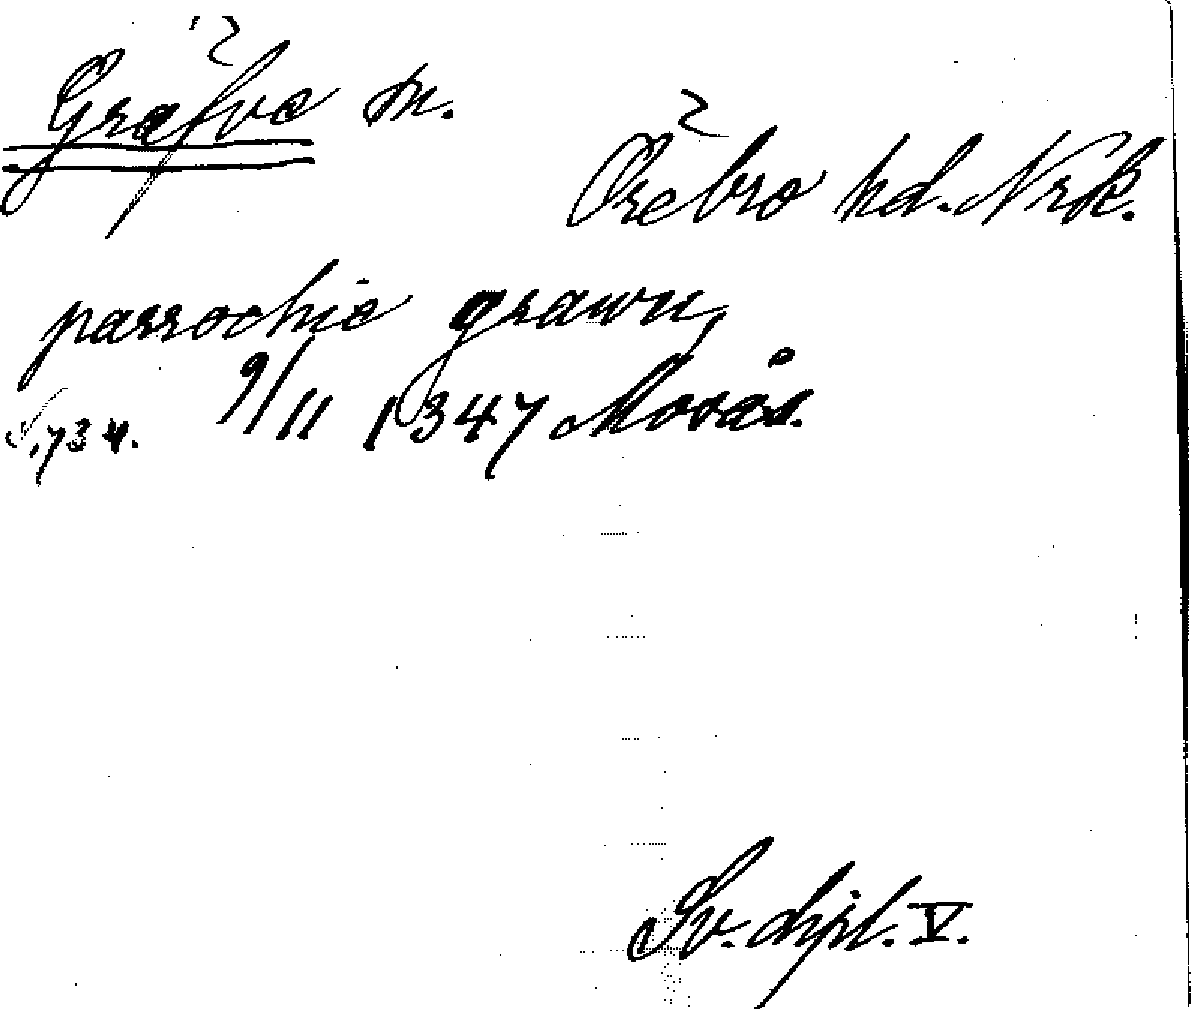 Gräfve sn.
Örebro hd. Nrk.
parrochie grawu,
S. 734. 9/11 1347 Mosås.
Sv. dipl. V.